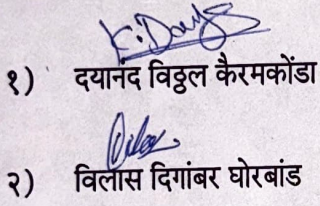 K. Days
१) दयानंद विठ्ठल कैरमकोंडा
२) विलास दिगांबर घोरबांड